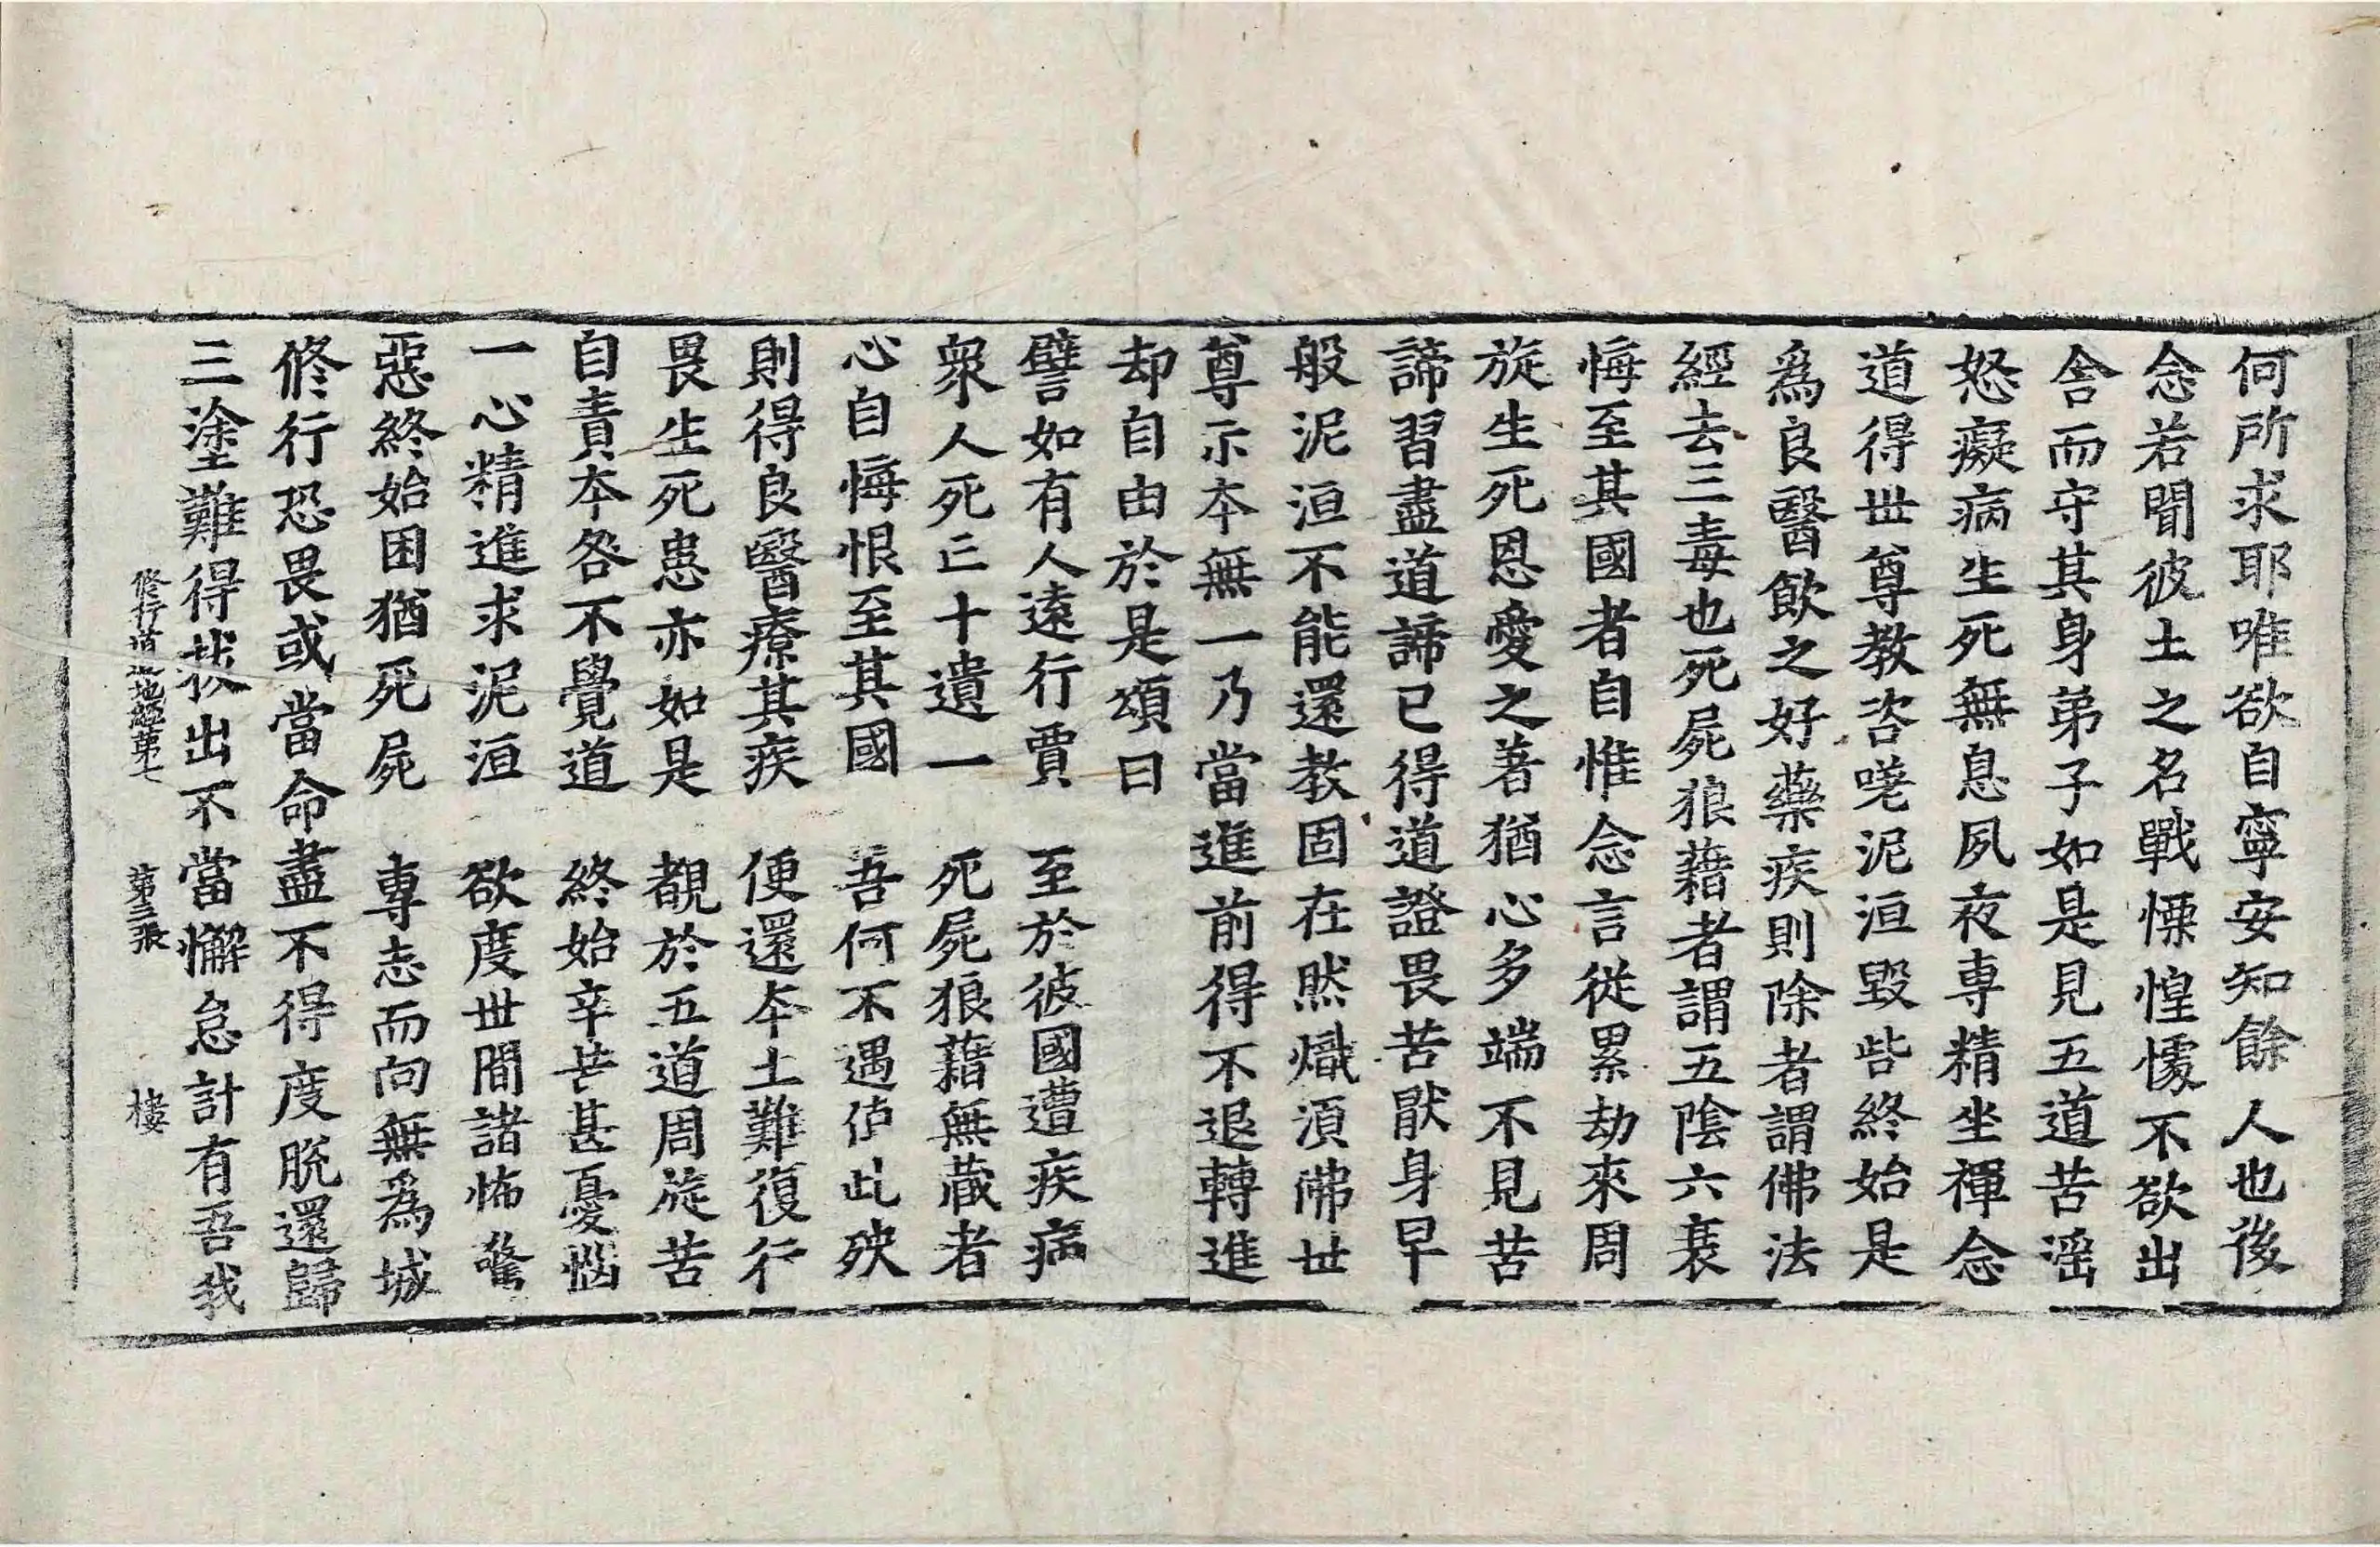 何所求耶唯欲自寧安知餘人也後
念若聞彼土之名戰慄惶懅不欲出
舍而守其身弟子如是見五道苦滛
怒癡病生死無息夙夜專精坐禪念
道得世尊教咨嗟泥洹毀呰終始是
爲良醫飲之好藥疾則除者謂佛法
經去三毒也死屍狼藉者謂五陰六衰
悔至其國者自惟念言從累劫來周
旋生死恩愛之著猶心多端不見苦
諦習盡道諦已得道證畏苦猒身早
般泥洹不能還教固在然熾湏佛世
尊示本無一乃當進前得不退轉進
却自由於是頌曰
譬如有人遠行賈　至於彼國遭疾病
衆人死亡十遺一　死屍狼藉無藏者
心自悔恨至其國　吾何不遇值此殃
則得良醫療其疾　便還本土難復行
畏生死患亦如是　覩於五道周旋苦
自責本咎不覺道　終始辛苦甚憂惱
一心精進求泥洹　欲度世間諸怖驚
惡終始困猶死屍　專志而向無爲城
修行恐畏或當命盡不得度脫還歸
三塗難得拔出不當懈怠計有吾我
修行道地經第七　第三張　棲